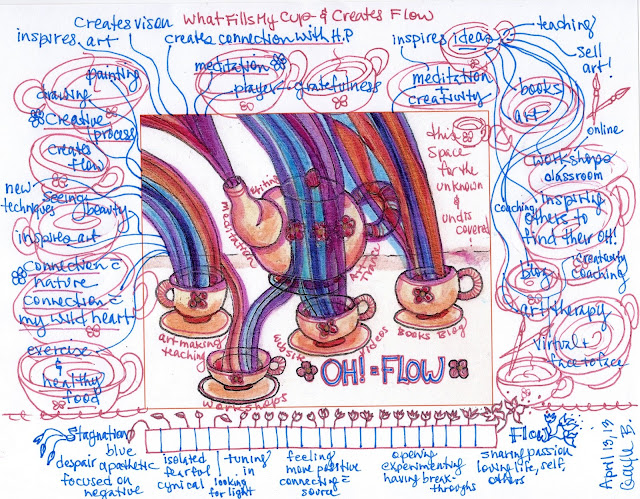 What Fills My Cup & Creates Flow
creates vison
inspires art
creates connection with H.P
meditation
prayer gratefulness
inspires ideas
meditation
+
creativity
teaching
sell
art!
books
art
online
workshops
classroom
coaching
inspiring
others to
find their OH!
creativity
coaching
blog
art therapy
virtual +
face to face
painting
drawing
Creative
process
creates
flow
new
techniques
seeing
beauty
inspires art
connection =
nature
connection =
my wild heart
exercise
&
healthy
food
this
space
for the
unknown
&
undiscovered!
writing
meditation
art making
teaching
website
videos
Books Blog
workshops
OH! = FLOW
Stagnation
blue
despair apathetic
focused on
negative
isolated
fearful
cynical
tuning
in
looking
for light
feeling
more positive
connecting =
source
opening
experimenting
having break-
throughs
Flow
sharing passion
loving life, self,
others
April 13, 13
Gayle B.